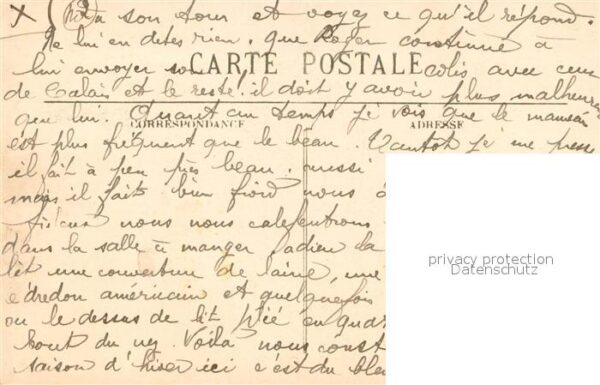 à son tour et voyez ce qu'il répond.
Ne lui en dites rien. que Roger continue à
lui envoyer son colis avec ceux
CARTE POSTALE
de Calais et le reste! il doit y avoir plus malheureux
que lui. Quant au temps je vois que le mauvais
CORRESPONDANCE
ADRESSE
est plus fréquent que le beau. Tantot je me
il fait à peu près beau. aussi
mais il fait bien froid nous
nous nous calfeutrons
dans la salle à manger adieu la
lit une couverture de laine, une
edredon américain et quelquefois
ou le dessus de lit plié en
bout du nez. Voilà nous
saison d'hiver ici c'est du
privacy protection
Datenschutz